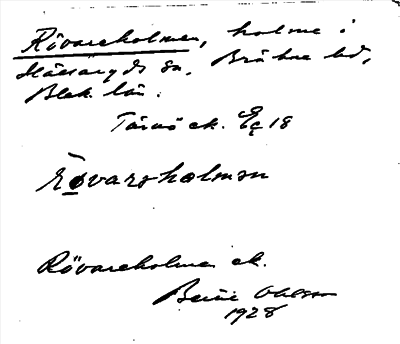 Rövareholmen, holme i
Hällaryds sn, Bräkne hd,
Blek. län.
Tärnö ek. Eç 18
Rövarsholmen
Rövareholmen ek.
Ohlsson
1928